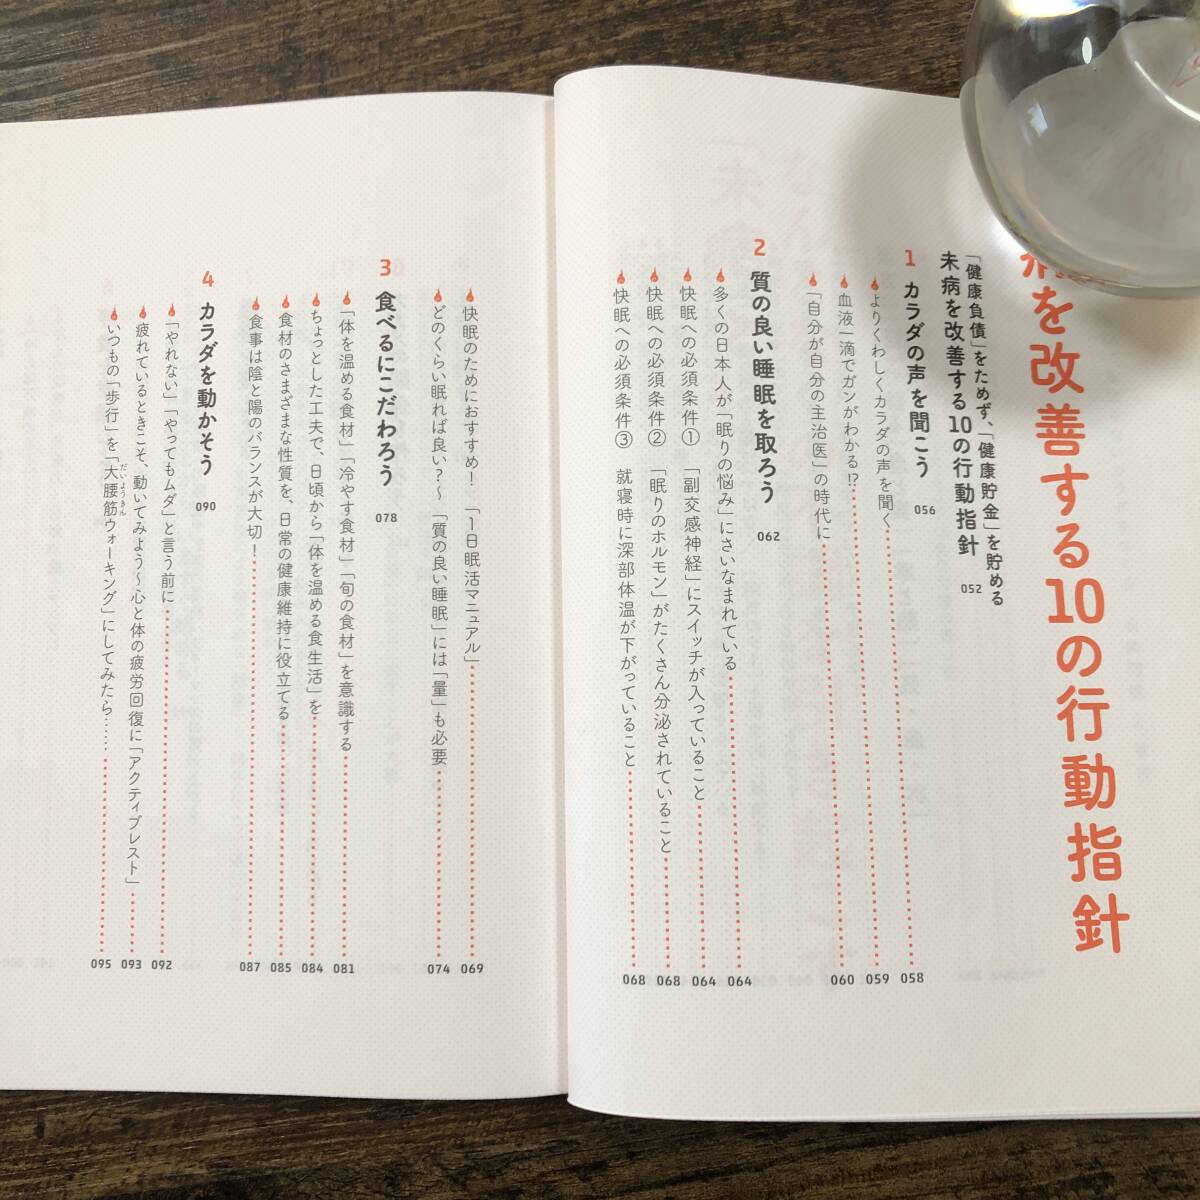 病を改善する10の行動指針
「健康負債」をためず、「健康貯金」を貯める
未病を改善する10の行動指針 052
1 カラダの声を聞こう 056
よりくわしくカラダの声を聞く 058
血液一滴でガンがわかる!? 059
「自分が自分の主治医」の時代に 060
2 質の良い睡眠を取ろう 062
多くの日本人が「眠りの悩み」にさいなまれている 064
快眠への必須条件① 「副交感神経」にスイッチが入っていること 064
快眠への必須条件② 「眠りのホルモン」がたくさん分泌されていること 068
快眠への必須条件③ 就寝時に深部体温が下がっていること 068
快眠のためにおすすめ! 「1日眠活マニュアル」 069
どのくらい眠れば良い?～「質の良い睡眠」には「量」も必要 074
3 食べるにこだわろう 078
「体を温める食材」「冷やす食材」「旬の食材」を意識する 081
ちょっとした工夫で、日頃から「体を温める食生活」を 084
食材のさまざまな性質を、日常の健康維持に役立てる 085
食事は陰と陽のバランスが大切! 087
4 カラダを動かそう 090
「やれない」「やってもムダ」と言う前に 092
疲れているときこそ、動いてみよう～心と体の疲労回復に「アクティブレスト」 093
いつもの「歩行」を「大腰筋ウォーキング」にしてみたら…… 095
だいようきん